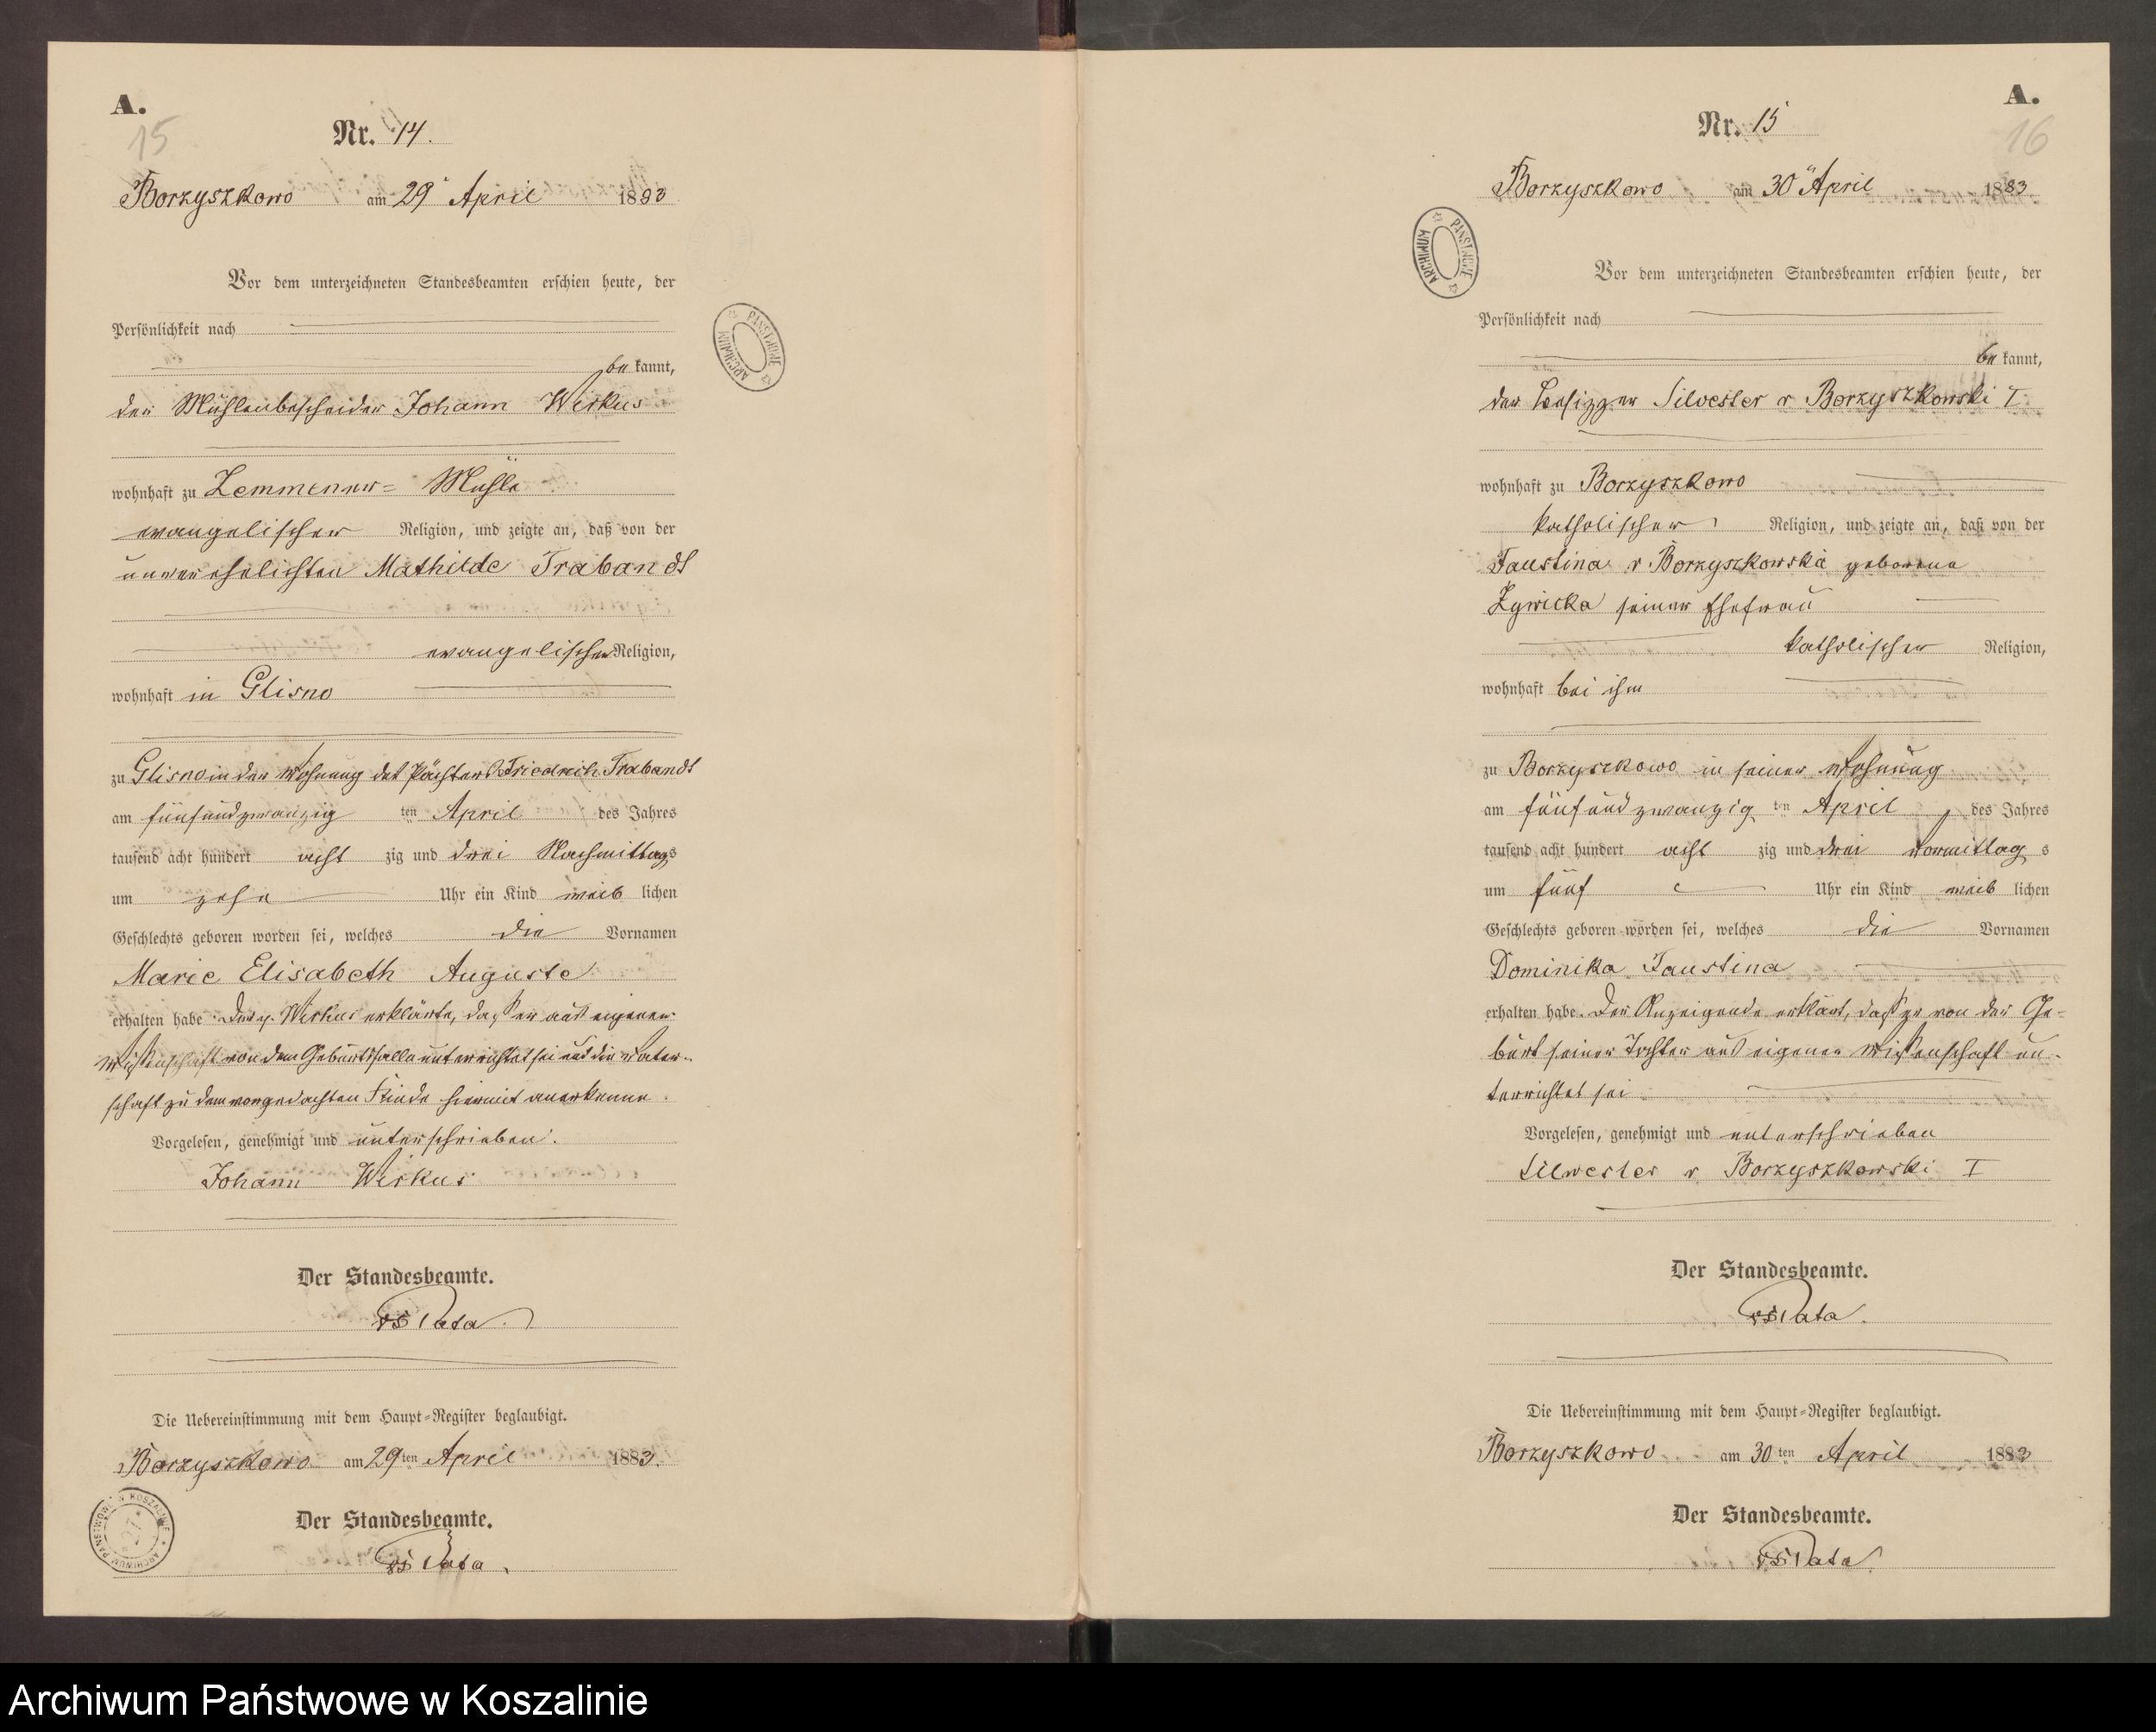 A.
15
Nr. 14.
Borzyszkowo am 29 April 1883
Vor dem unterzeichneten Standesbeamten erschien heute, der
Persönlichkeit nach
be kannt,
der Mühlenbescheider Johann Wirkus
wohnhaft zu Zemmener= Mühle
evangelischer Religion, und zeigte an, daß von der
unverehelichten Mathilde Trabandt
evangelischer Religion,
wohnhaft in Glisno
zu Glisno in der Wohnung des Pächters Friedrich Trabandt
am fünfundzwanzig ten April des Jahres
tausend acht hundert acht zig und drei Nachmittags
um zehn Uhr ein Kind weib lichen
Geschlechts geboren worden sei, welches die Vornamen
Marie Elisabeth Auguste
erhalten habe. Der p. Wirkus erklärte, daß er aus eigener
Wissenschaft von dem Geburtsfalle unterrichtet sei und die Vater-
schaft zu dem vorgedachten Kinde hiermit anerkenne.
Vorgelesen, genehmigt und unterschrieben.
Johann Wirkus
Der Standesbeamte.
Pata.
Die Uebereinstimmung mit dem Haupt=Register beglaubigt.
Borzyszkowo am 29 ten April 1883.
Der Standesbeamte.
Pata.
ARCHIWUM PAŃSTWOWE
ARCHIWUM PAŃSTWOWE W KOSZALINIE
27
A.
16
Nr. 15
Borzyszkowo am 30 April 1883
ARCHIWUM PAŃSTWOWE
Vor dem unterzeichneten Standesbeamten erschien heute, der
Persönlichkeit nach
be kannt,
der Besitzer Silvester v Borzyszkowski I
wohnhaft zu Borzyszkowo
katholischer Religion, und zeigte an, daß von der
Faustina v Borzyszkowska geborene
Zywicka seiner Ehefrau
katholischer Religion,
wohnhaft bei ihm
zu Borzyszkowo in seiner Wohnung
am fünfundzwanzig ten April des Jahres
tausend acht hundert acht zig und drei Vormittag s
um fünf Uhr ein Kind weib lichen
Geschlechts geboren worden sei, welches die Vornamen
Dominika Faustina
erhalten habe. Der Anzeigende erklärt, daß er von der Ge-
burt seiner Tochter aus eigener Wissenschaft un-
terrichtet sei
Vorgelesen, genehmigt und unterschrieben
Silwester v Borzyszkowski I
Der Standesbeamte.
Pata.
Die Uebereinstimmung mit dem Haupt=Register beglaubigt.
Borzyszkowo am 30 ten April 1883
Der Standesbeamte.
Pata.
Archiwum Państwowe w Koszalinie